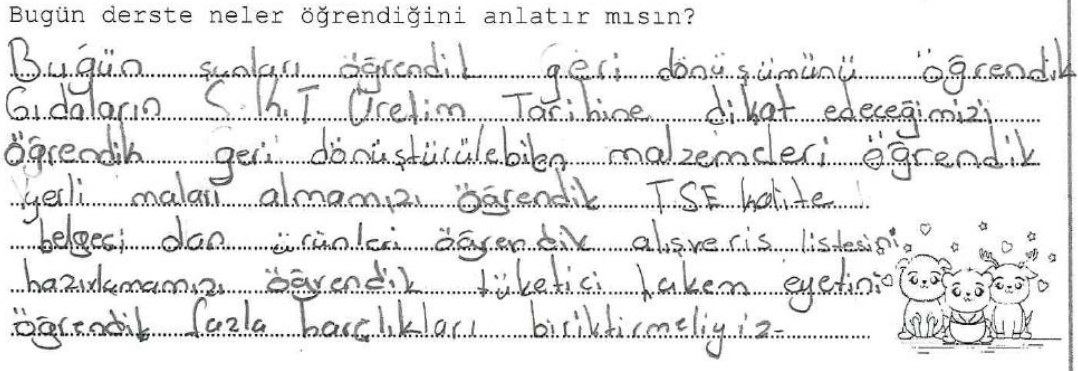 Bugün derste neler öğrendiğini anlatır mısın?
Bugün şunları öğrendik geri dönüşümünü öğrendik
Gıdaların S.k.T Üretim Tarihine dikat edeceğimizi
öğrendik geri dönüştürülebilen malzemeleri öğrendik
yerli maları almamızı öğrendik TSE kalite
belgesi olan ürünleri öğrendik alışveris listesini
hazırlamamızı öğrendik tüketici hakem eyetini
öğrendik fazla harçlıkları biriktirmeliyiz-